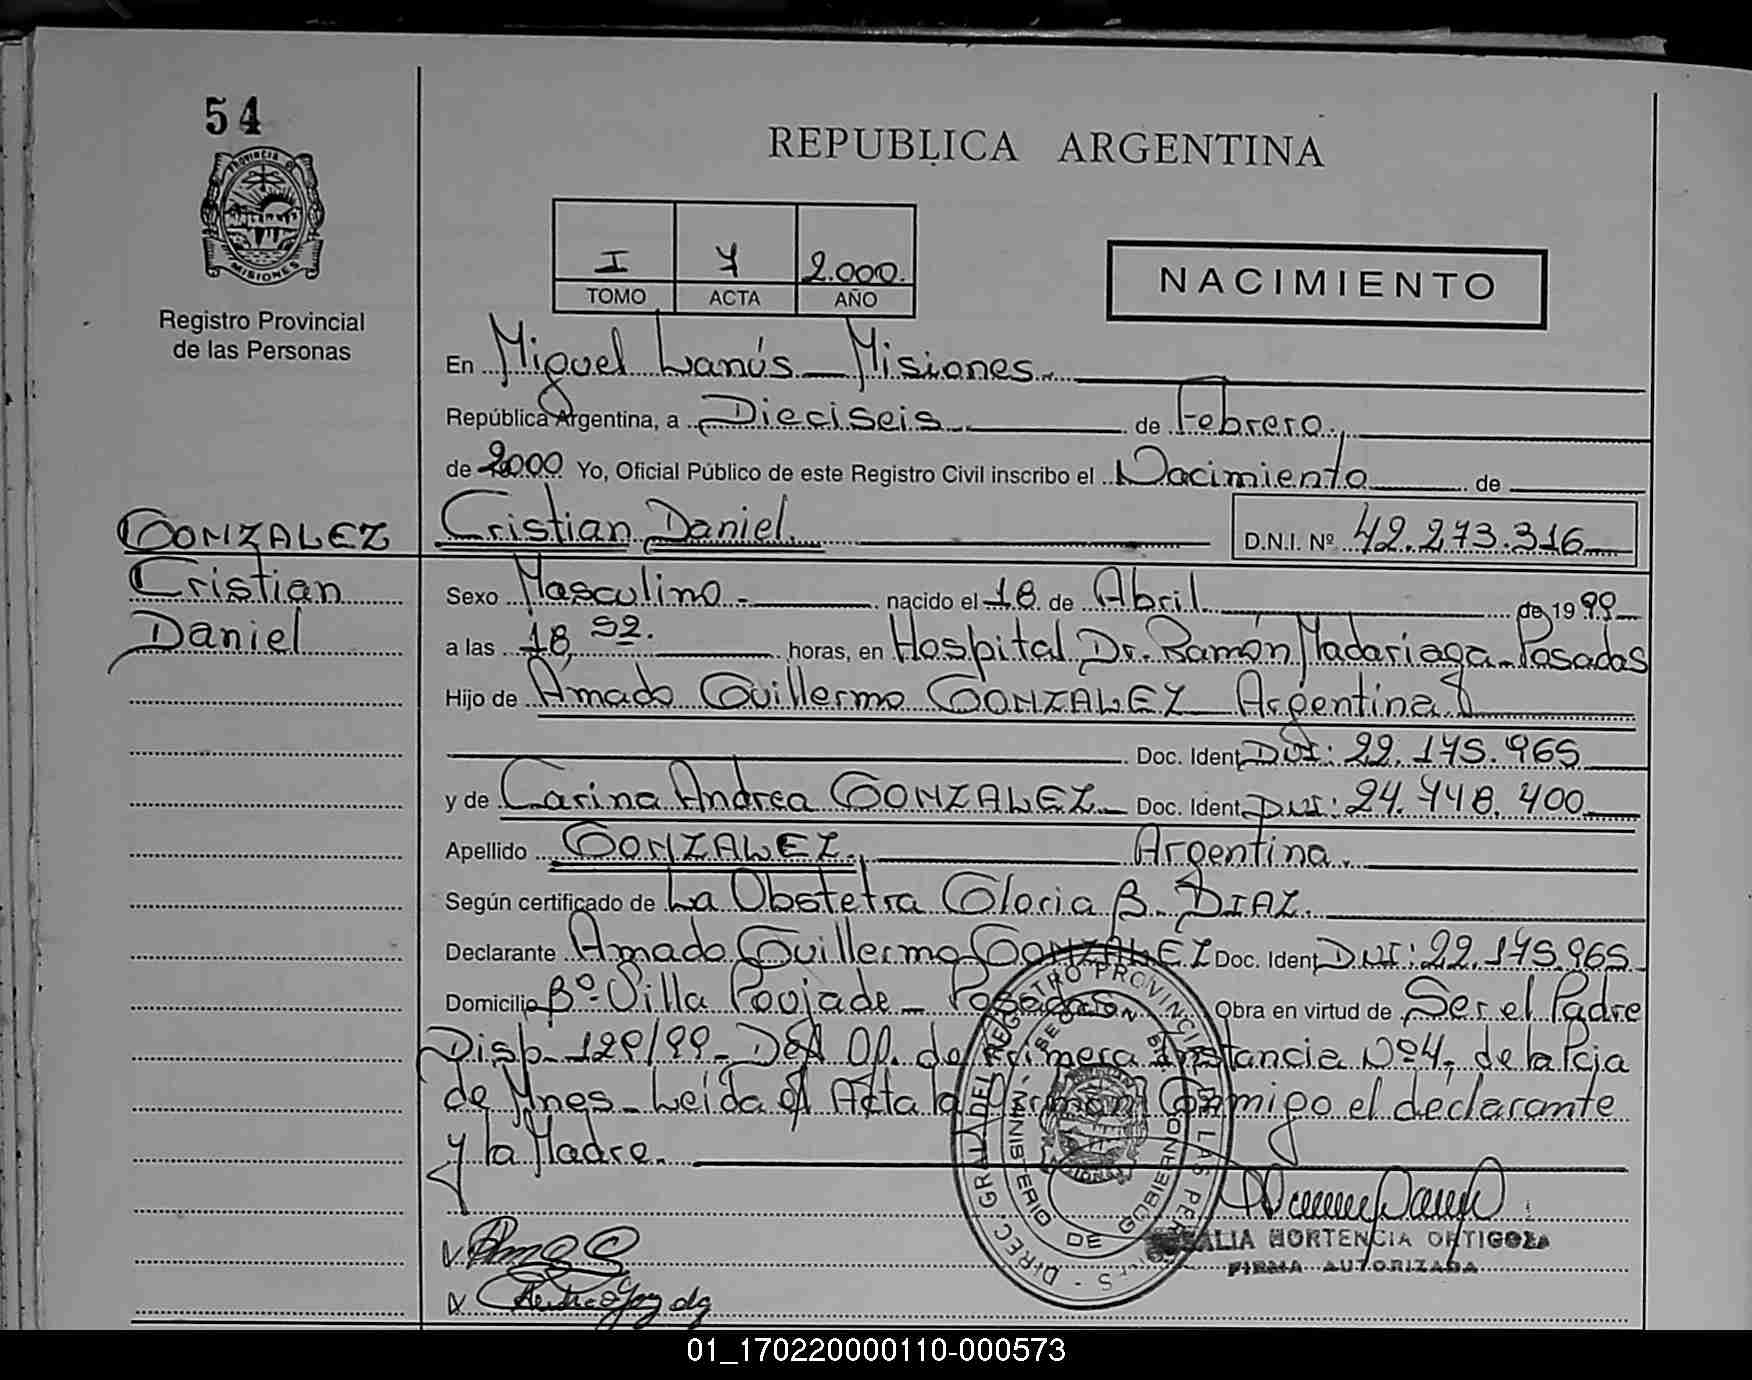 54
PROVINCIA DE
MISIONES
Registro Provincial
de las Personas
REPUBLICA ARGENTINA
I 4 2.000.
TOMO ACTA AÑO
NACIMIENTO
En Miguel Lanús - Misiones.
República Argentina, a Dieciseis de Febrero.
de 2000 Yo, Oficial Público de este Registro Civil inscribo el Nacimiento de
GONZALEZ Cristian Daniel. D.N.I. Nº 42.273.316
Cristian Sexo Masculino - nacido el 18 de Abril de 1999
Daniel a las 18,52. horas, en Hospital Dr. Ramón Madariaga - Posadas
Hijo de Amado Guillermo GONZALEZ Argentina
Doc. Ident DNI: 22.175.965
y de Carina Andrea GONZALEZ - Doc. Ident DNI: 24.448.400
Apellido GONZALEZ, Argentina.
Según certificado de La Obstetra Gloria B. DIAZ.
Declarante Amado Guillermo GONZALEZ Doc. Ident DNI: 22.175.965
Domicilio Bº Villa Poujade - Posadas Obra en virtud de Ser el Padre
Disp. 129/99 - Def. Of. de Primera Instancia Nº 4, de la Pcia
de Mnes - Leida el Acta la firman Conmigo el declarante
y la Madre.
DIREC. GRAL. DEL REGISTRO PROVINCIAL DE LAS PERS
MINISTERIO DE GOBIERNO
HORTENCIA ORTIGOZA
FIRMA AUTORIZADA
01_170220000110-000573